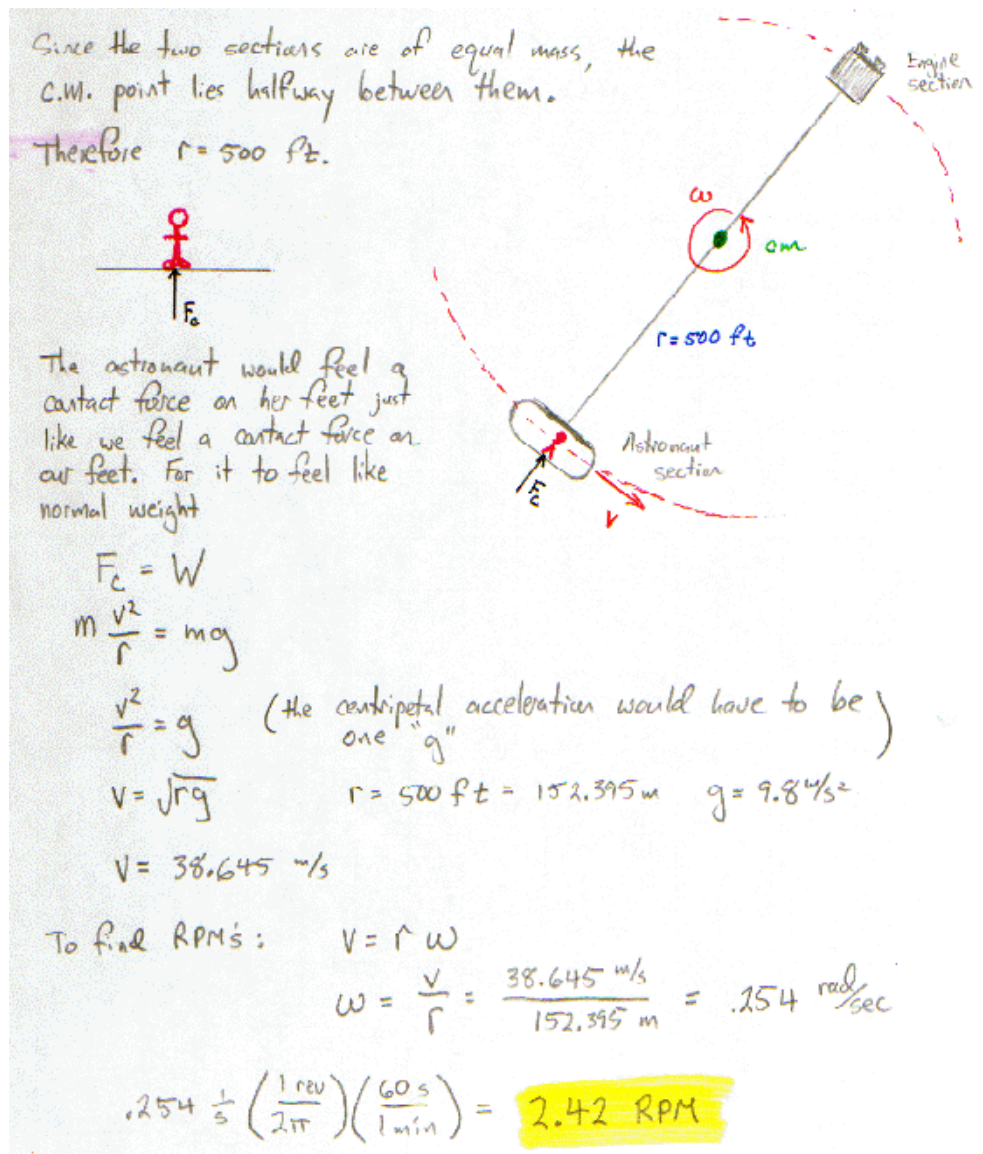 Since the two sections are of equal mass, the
c.m. point lies halfway between them.
Therefore r = 500 ft.
Engine
section
ω
cm
r = 500 ft
Fc
The astronaut would feel a
contact force on her feet just
like we feel a contact force on
our feet. For it to feel like
normal weight
Astronaut
section
Fc
v
Fc = W
m v²/r = mg
v²/r = g (the centripetal acceleration would have to be
one "g")
v = √rg r = 500 ft = 152.395 m g = 9.8 m/s²
v = 38.645 m/s
To find RPM's: v = r ω
ω = v/r = 38.645 m/s / 152.395 m = .254 rad/sec
.254 1/s (1 rev/2π)(60 s/1 min) = 2.42 RPM